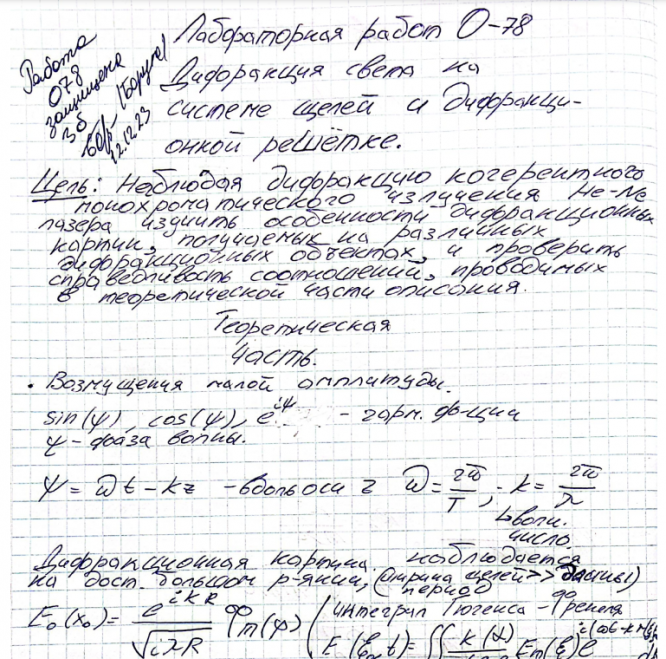 Лабораторная работ О-78
Работа
О78
защищена
36
22.12.23
Дифракция света на
системе щелей и дифракци-
онной решётке.
Цель: Наблюдая дифракцию когерентного
монохроматического излучения He-Ne
лазера изучить особенности дифракционных
картин, получаемых на различных
дифракционных объектах, и проверить
справедливость соотношений, проводимых
в теоретической части описания.
Теоретическая
часть.
• Возмущения малой амплитуды.
sin(ψ), cos(ψ), e^{iψ} - гарм. ф-ции
ψ - фаза волны.
ψ = ωt - kz - вдоль оси z ω = 2π/T ; k = 2π/λ
↳ волн.
число.
Дифракционная картина наблюдается
на дост. большом р-янии, (ширина щелей >>
период)
E₀(x₀) = e^{ikR}/√(iλR) (интеграл Гюгенса - Френеля